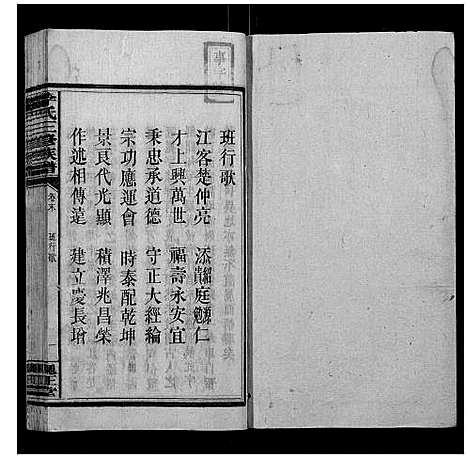 班行歌
江客楚仲亮 添貴庭勉仁
才上興萬世 福壽永安宜
秉忠承道德 守正大經綸
宗功應運會 時泰配乾坤
景良代光顯 積澤兆昌榮
作述相傳遠 建立慶長增
氏三修族譜
卷末
班行歌
一